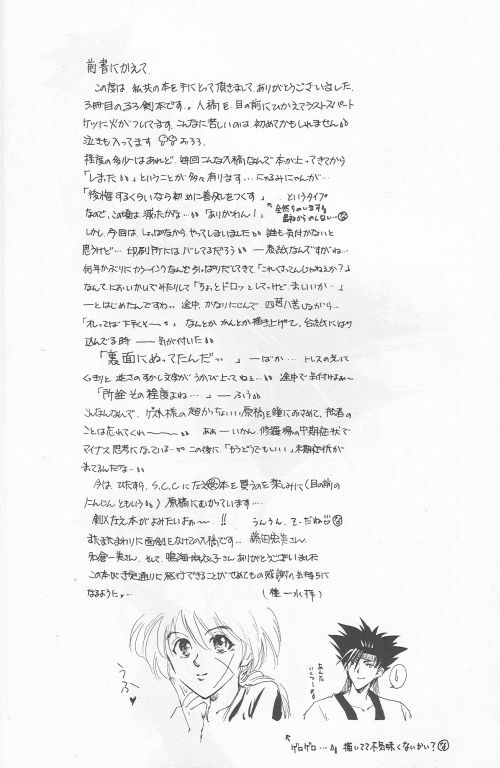 前書にかえて
この度は、私共の本を手にとって頂きまして、ありがとうございました。
3冊目のろろ剣本です。人稿を目の前にひかえてラストスパート
ケツに火がついてます。こんなに苦しいのは、初めてかもしれません
泣きも入ってます おろろ.
程度の多少はあれど、毎回こんな入稿なんで本が上ってきてから
「しまった」ということが多々有ります…にゃるみにゃんが…
「後悔するくらいなら初めに善処をつくす」 というタイプ
なので、この頃は減ったかな…「ありがわん!」
全然ちがいます
しかし今回は、しょっぱなから、やってしまいました 誰も気付かないと
思うけど… 印刷所にはバレてるだろう ― 表紙なんですがね…
何年かぶりにカラーインクなんぞ引っぱりだしてきて「これくさってんじゃねぇか?」
なんて、においかいでみたりして「ちょっとドロッとしてっけど、ましいか…」
―とはじめたんですわ。途中、かなりにじんで、四苦八苦しながら…
「オレってば下手くそ―」なんとか かんとか描き上げて、台紙にはり
込んでる時 ― 気が付いた
「裏面にぬってたんだっ」―ばか… トレスのえって
くっきりと逆さのすかし文字がうかび上ってねぇ… 途中で気付けよぉ~
「所詮その程度よね…」―ふう
こんなんなんで、ゲスト様の超かっちょいい原稿を瞳におさめて、拙者の
ことは忘れてくれ~ ああ―いかん、修羅場の中期症状で
マイナス思考になっている… この後に、「もうどうでもいい」末期症状が
まってるんだな…
今は ひたすら、S.C.Cに左之本を買うのを楽しみに(目の前の
にんじんともいう)原稿にむかっています…
剣×左之本がよみたいよぉ~.!! うんうん.て・だね な
またまたまわりに面倒をかけての入稿です… 藤田宏美さん、
名倉一美さん、そして、鳴海麻衣子さんありがとうございました
この本が予定通りに発行できることがせめてもの感謝の気持ちに
なるように。
うふ♥
あんた いくつ…
ゲロゲロ… 描いてて不気味くないかい? な